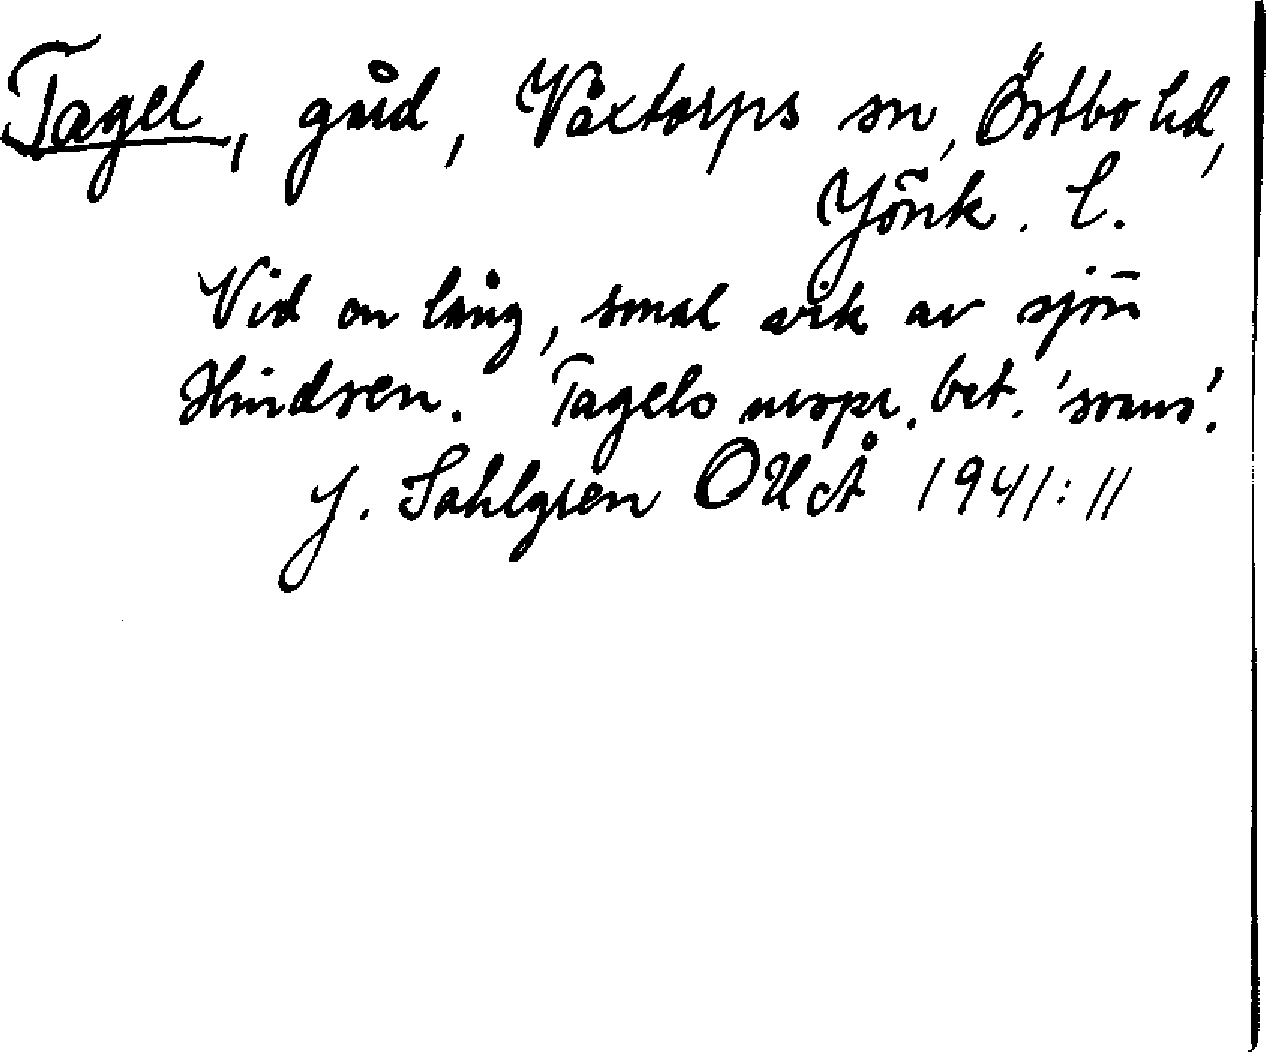 Tagel, gård, Våxtorps sn, Östbo hd,
Jönk. l.
Vid en lång, smal vik av sjön
Hindsen. Tagels urspr. bet. 'svans'.
J. Sahlgren OUÅ 1941:11